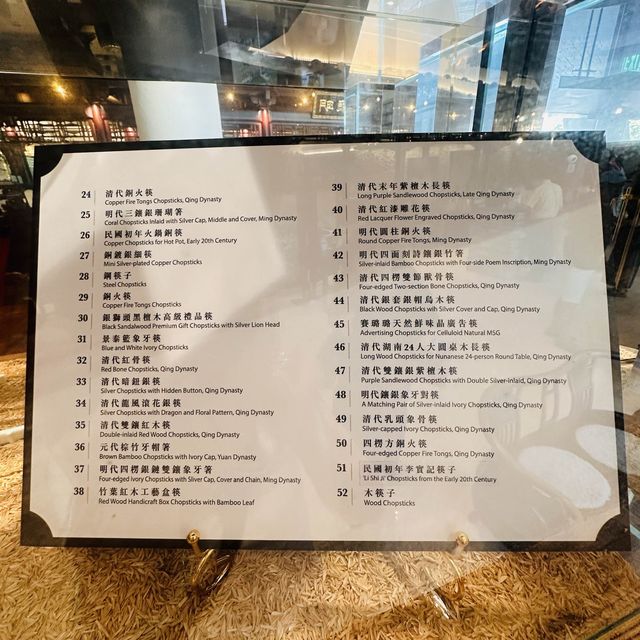 24 清代銅火筷
Copper Fire Tongs Chopsticks, Qing Dynasty
25 明代三鑲銀珊瑚箸
Coral Chopsticks Inlaid with Silver Cap, Middle and Cover, Ming Dynasty
26 民國初年火鍋銅筷
Copper Chopsticks for Hot Pot, Early 20th Century
27 銅鍍銀細筷
Mini Silver-plated Copper Chopsticks
28 鋼筷子
Steel Chopsticks
29 銅火筷
Copper Fire Tongs Chopsticks
30 銀獅頭黑檀木高級禮品筷
Black Sandalwood Premium Gift Chopsticks with Silver Lion Head
31 景泰藍象牙筷
Blue and White Ivory Chopsticks
32 清代紅骨筷
Red Bone Chopsticks, Qing Dynasty
33 清代暗鈕銀筷
Silver Chopsticks with Hidden Button, Qing Dynasty
34 清代龍鳳滾花銀筷
Silver Chopsticks with Dragon and Floral Pattern, Qing Dynasty
35 清代雙鑲紅木筷
Double-inlaid Red Wood Chopsticks, Qing Dynasty
36 元代棕竹牙帽箸
Brown Bamboo Chopsticks with Ivory Cap, Yuan Dynasty
37 明代四楞銀鏈雙鑲象牙箸
Four-edged Ivory Chopsticks with Silver Cap, Cover and Chain, Ming Dynasty
38 竹葉紅木工藝盒筷
Red Wood Handicraft Box Chopsticks with Bamboo Leaf
39 清代末年紫檀木長筷
Long Purple Sandlewood Chopsticks, Late Qing Dynasty
40 清代紅漆雕花筷
Red Lacquer Flower Engraved Chopsticks, Qing Dynasty
41 明代圓柱銅火筷
Round Copper Fire Tongs, Ming Dynasty
42 明代四面刻詩鑲銀竹箸
Silver-inlaid Bamboo Chopsticks with Four-side Poem Inscription, Ming Dynasty
43 清代四楞雙節獸骨筷
Four-edged Two-section Bone Chopsticks, Qing Dynasty
44 清代銀套銀帽烏木筷
Black Wood Chopsticks wih Silver Cover and Cap, Qing Dynasty
45 賽璐璐天然鮮味晶廣告筷
Advertising Chopsticks for Celluloid Natural MSG
46 清代湖南24人大圓桌木長筷
Long Wood Chopsticks for Nunanese 24-person Round Table, Qing Dynasty
47 清代雙鑲銀紫檀木筷
Purple Sandlewood Chopsticks with Double Silver-Inlaid, Qing Dynasty
48 明代鑲銀象牙對筷
A Matching Pair of Silver-inlaid Ivory Chopsticks, Qing Dynasty
49 清代乳頭象骨筷
Silver-capped Ivory Chopsticks, Qing Dynasty
50 四楞方銅火筷
Four-edged Copper Fire Tongs, Qing Dynasty
51 民國初年李實記筷子
'Li Shi Ji' Chopsticks from the Early 20th Century
52 木筷子
Wood Chopsticks